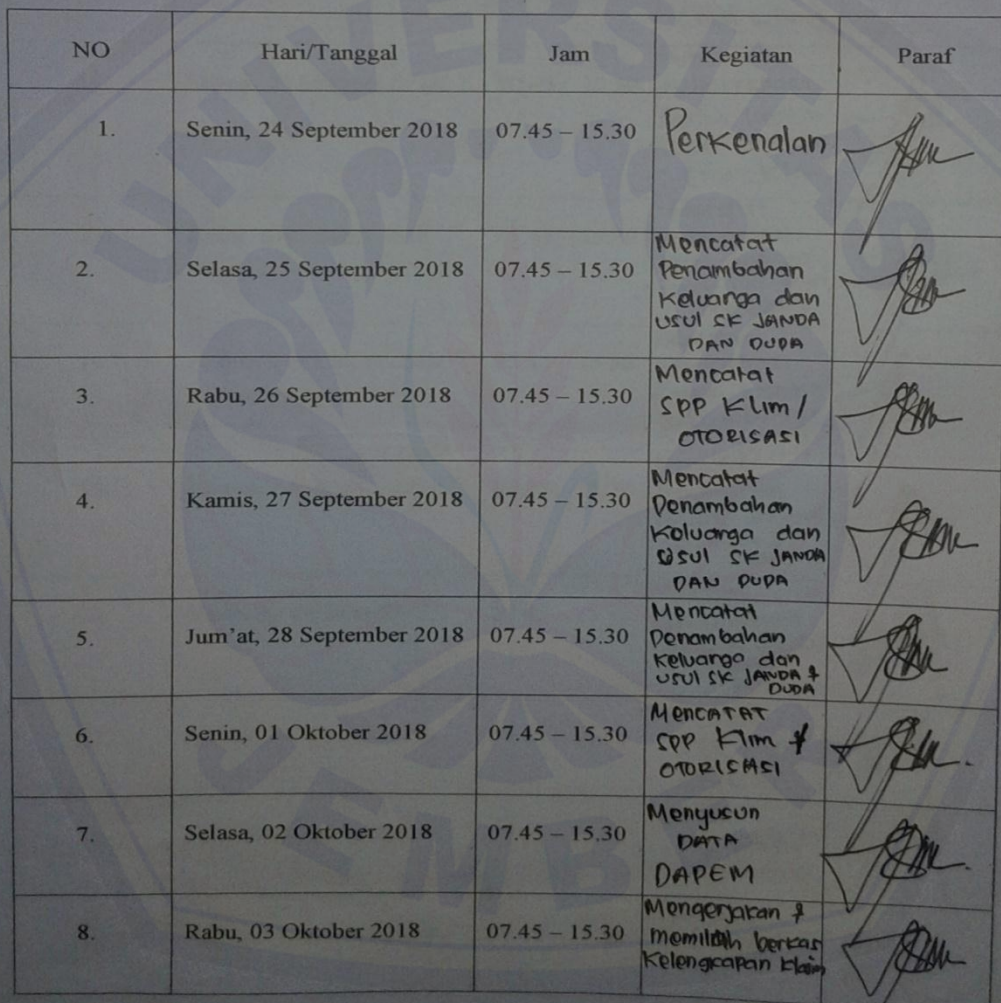 NO Hari/Tanggal Jam Kegiatan Paraf
1. Senin, 24 September 2018 07.45 – 15.30 Perkenalan
2. Selasa, 25 September 2018 07.45 – 15.30 Mencatat
Penambahan
Keluarga dan
USUl SK JANDA
DAN DUDA
3. Rabu, 26 September 2018 07.45 – 15.30 Mencatat
SPP Klim /
OTORISASI
4. Kamis, 27 September 2018 07.45 – 15.30 Mencatat
Penambahan
Koluarga dan
USUl SK JANDA
DAN DUDA
5. Jum'at, 28 September 2018 07.45 – 15.30 Mencatat
Penambahan
Keluarga dan
USUl SK JANDA &
DUDA
6. Senin, 01 Oktober 2018 07.45 – 15.30 MENCATAT
SPP Klim &
OTORISASI
7. Selasa, 02 Oktober 2018 07.45 – 15.30 Menyusun
DATA
DAPEM
8. Rabu, 03 Oktober 2018 07.45 – 15.30 Mengerjakan &
memilah berkas
Kelengkapan klaim
UNIVERSITAS
JEMBER